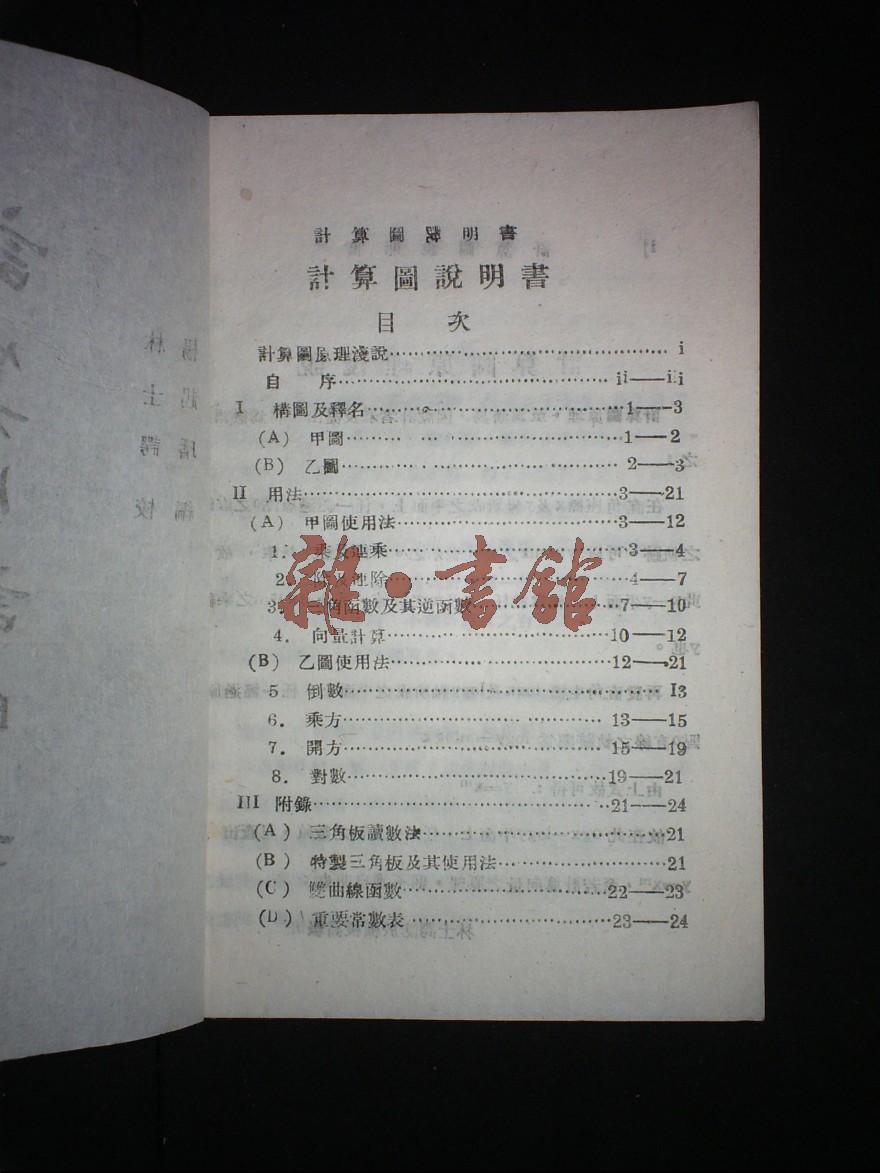 計算圖說明書
計算圖說明書
目 次
計算圖原理淺說…………………………………… i
自 序…………………………………ii——iii
I 構圖及釋名…………………………………1——3
(A) 甲圖…………………………………1——2
(B) 乙圖…………………………………2——3
II 用法…………………………………3——21
(A) 甲圖使用法…………………………3——12
1. 乘及連乘…………………………3——4
2. 除及連除…………………………4——7
3. 三角函數及其逆函數………………7——10
4. 向量計算…………………………10——12
(B) 乙圖使用法…………………………12——21
5 倒數…………………………………13
6. 乘方…………………………………13——15
7. 開方…………………………………15——19
8. 對數…………………………………19——21
III 附錄…………………………………21——24
(A) 三角板讀數法…………………………21
(B) 特製三角板及其使用法…………………21
(C) 雙曲線函數…………………………22——23
(D) 重要常數表…………………………23——24
雜·書館